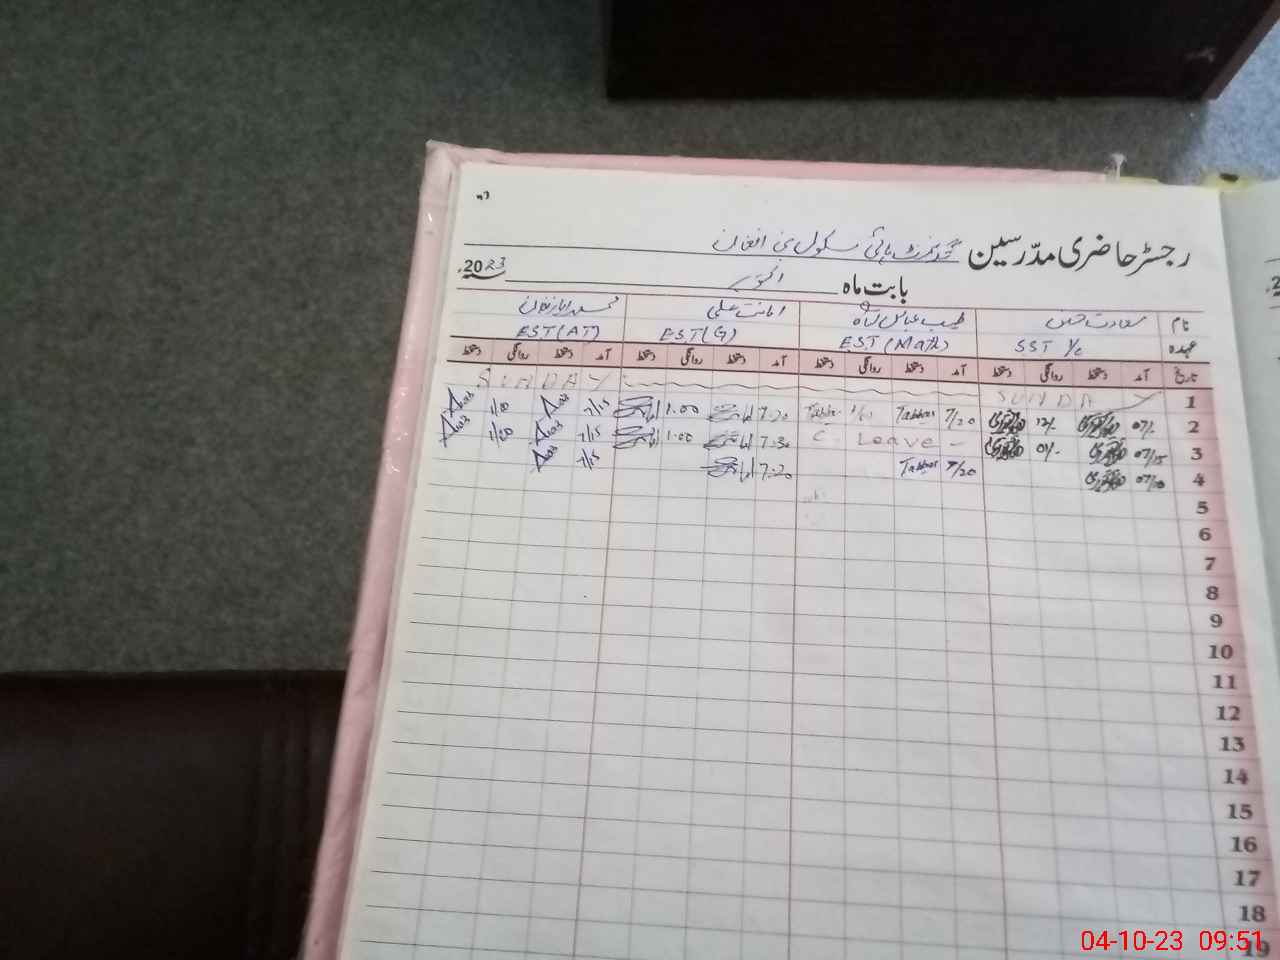 رجسٹر حاضری مدرسین گورنمنٹ ہائی سکول بنی افغان
بابت ماہ اکتوبر 2023ء
نام سعادت حسین طیب عباس شاہ امانت علی
عہدہ SST I/C EST (Math) EST (G) EST (AT)
تاریخ آمد دستخط روانگی دستخط آمد دستخط روانگی دستخط آمد دستخط روانگی دستخط آمد دستخط روانگی دستخط
1 SUNDAY SUNDAY
2 07/- 12/- 7/20 Tabbas 7:20 1.00 7/15 1/00
3 07/15 01/- C. Leave - 7:30 1.00 7/15 1/00
4 07/10 7/20 Tabbas 7:20 7/15
5
6
7
8
9
10
11
12
13
14
15
16
17
18
19
04-10-23 09:51